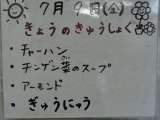 7月9日(金)
きょうのきゅうしょく
・チャーハン
・チンゲン菜のスープ
・アーモンド
・ぎゅうにゅう